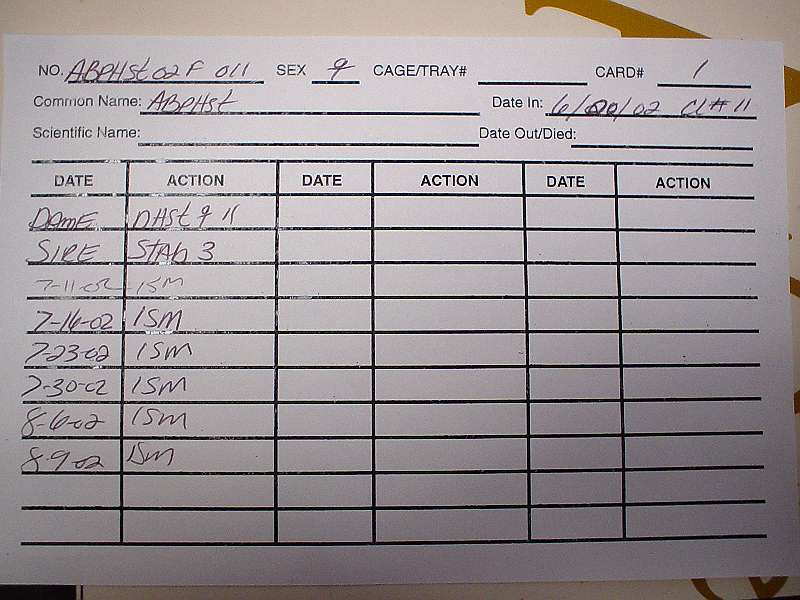 NO. ABPHSt 02 F 011 SEX ♀ CAGE/TRAY# CARD# 1
Common Name: ABPHSt Date In: 6/ /02 CL# 11
Scientific Name: Date Out/Died:
DATE ACTION DATE ACTION DATE ACTION
DAME DHSt ♀ 11
SIRE STAh 3
7-11-02 1SM
7-16-02 1SM
7-23-02 1SM
7-30-02 1SM
8-6-02 1SM
8-9-02 1SM